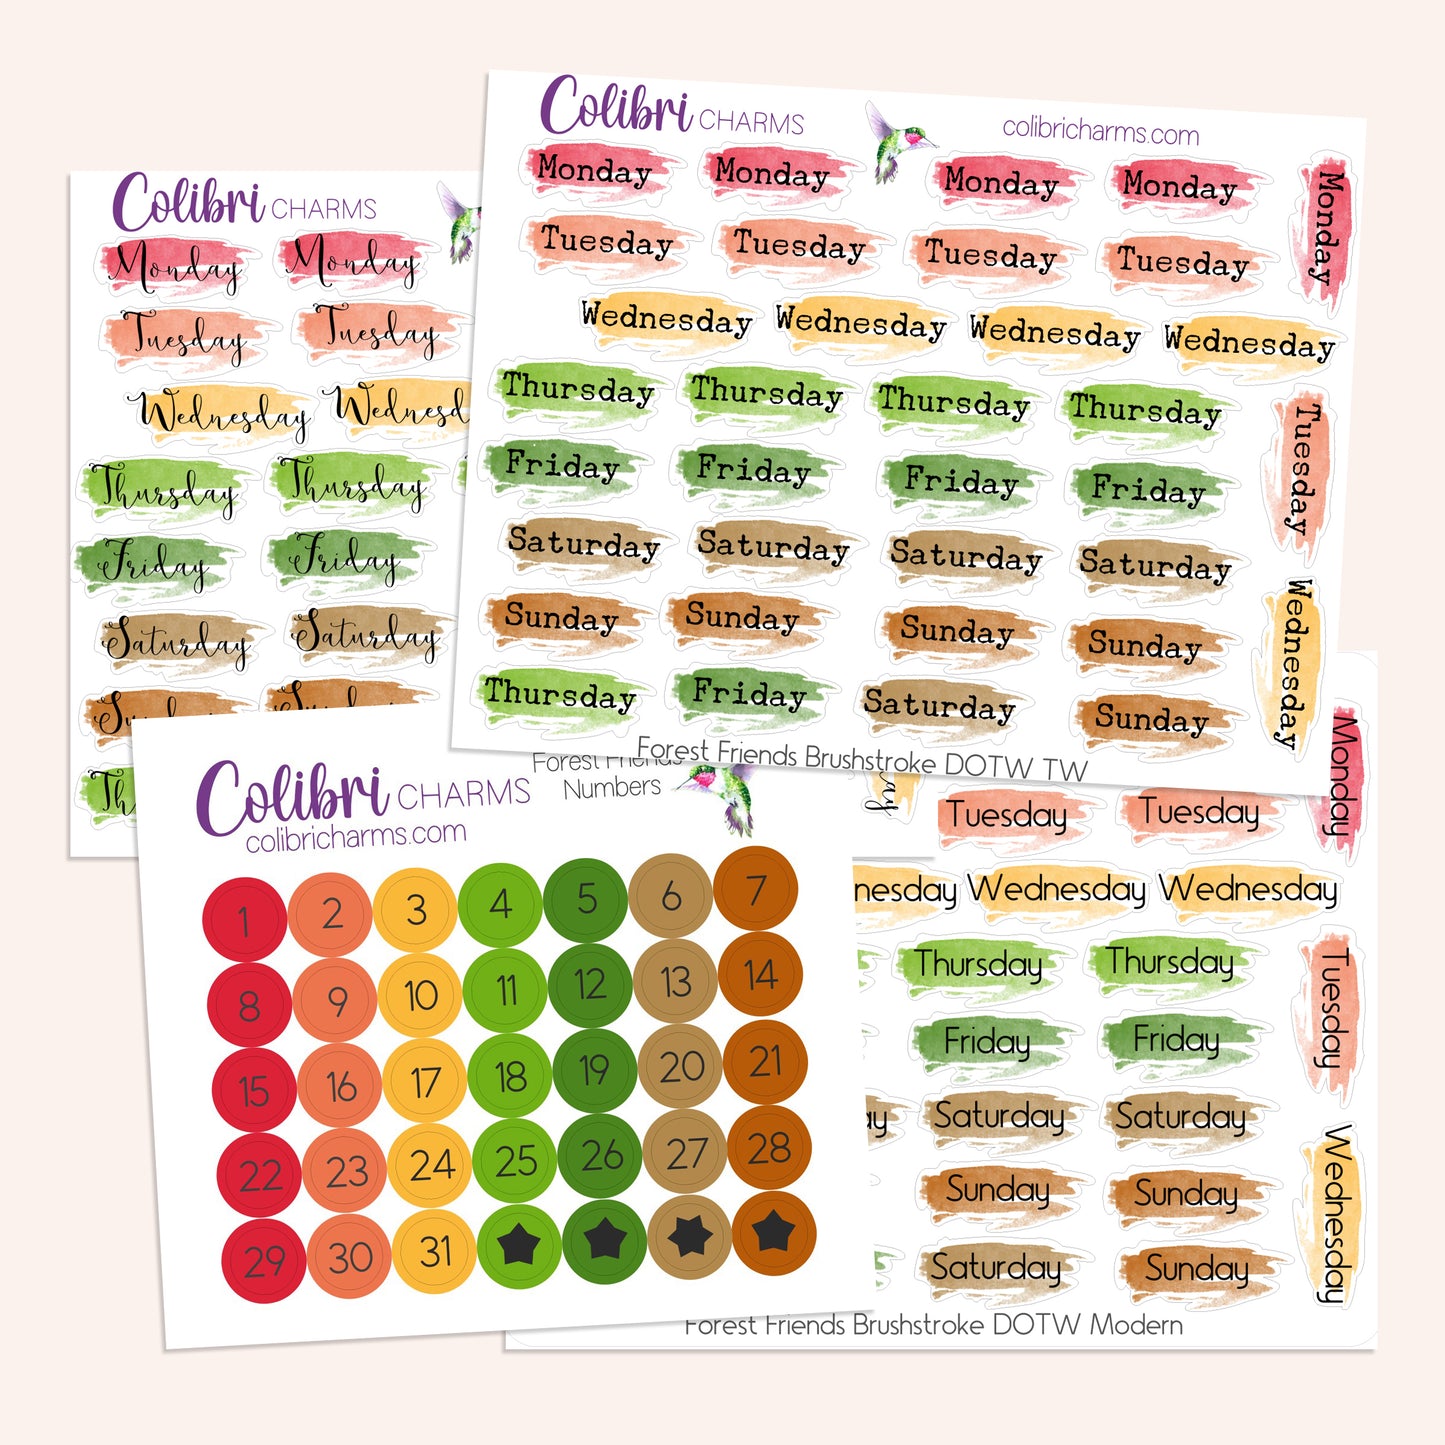 Colibri CHARMS
colibricharms.com
Monday Monday Monday Monday Monday
Tuesday Tuesday Tuesday Tuesday
Wednesday Wednesday Wednesday Wednesday
Thursday Thursday Thursday Thursday
Tuesday
Friday Friday Friday Friday
Saturday Saturday Saturday Saturday
Sunday Sunday Sunday Sunday
Wednesday
Thursday Friday Saturday Sunday
Forest Friends Brushstroke DOTW TW
Colibri CHARMS
Monday Monday
Tuesday Tuesday
Wednesday Wednesd
Thursday Thursday
Friday Friday
Saturday Saturday
Th
Colibri CHARMS
colibricharms.com
Forest Friends
Numbers
1 2 3 4 5 6 7
8 9 10 11 12 13 14
15 16 17 18 19 20 21
22 23 24 25 26 27 28
29 30 31
Monday
Tuesday Tuesday
nesday Wednesday Wednesday
Thursday Thursday
Tuesday
Friday Friday
ay Saturday Saturday
Sunday Sunday
Wednesday
Saturday Sunday
Forest Friends Brushstroke DOTW Modern